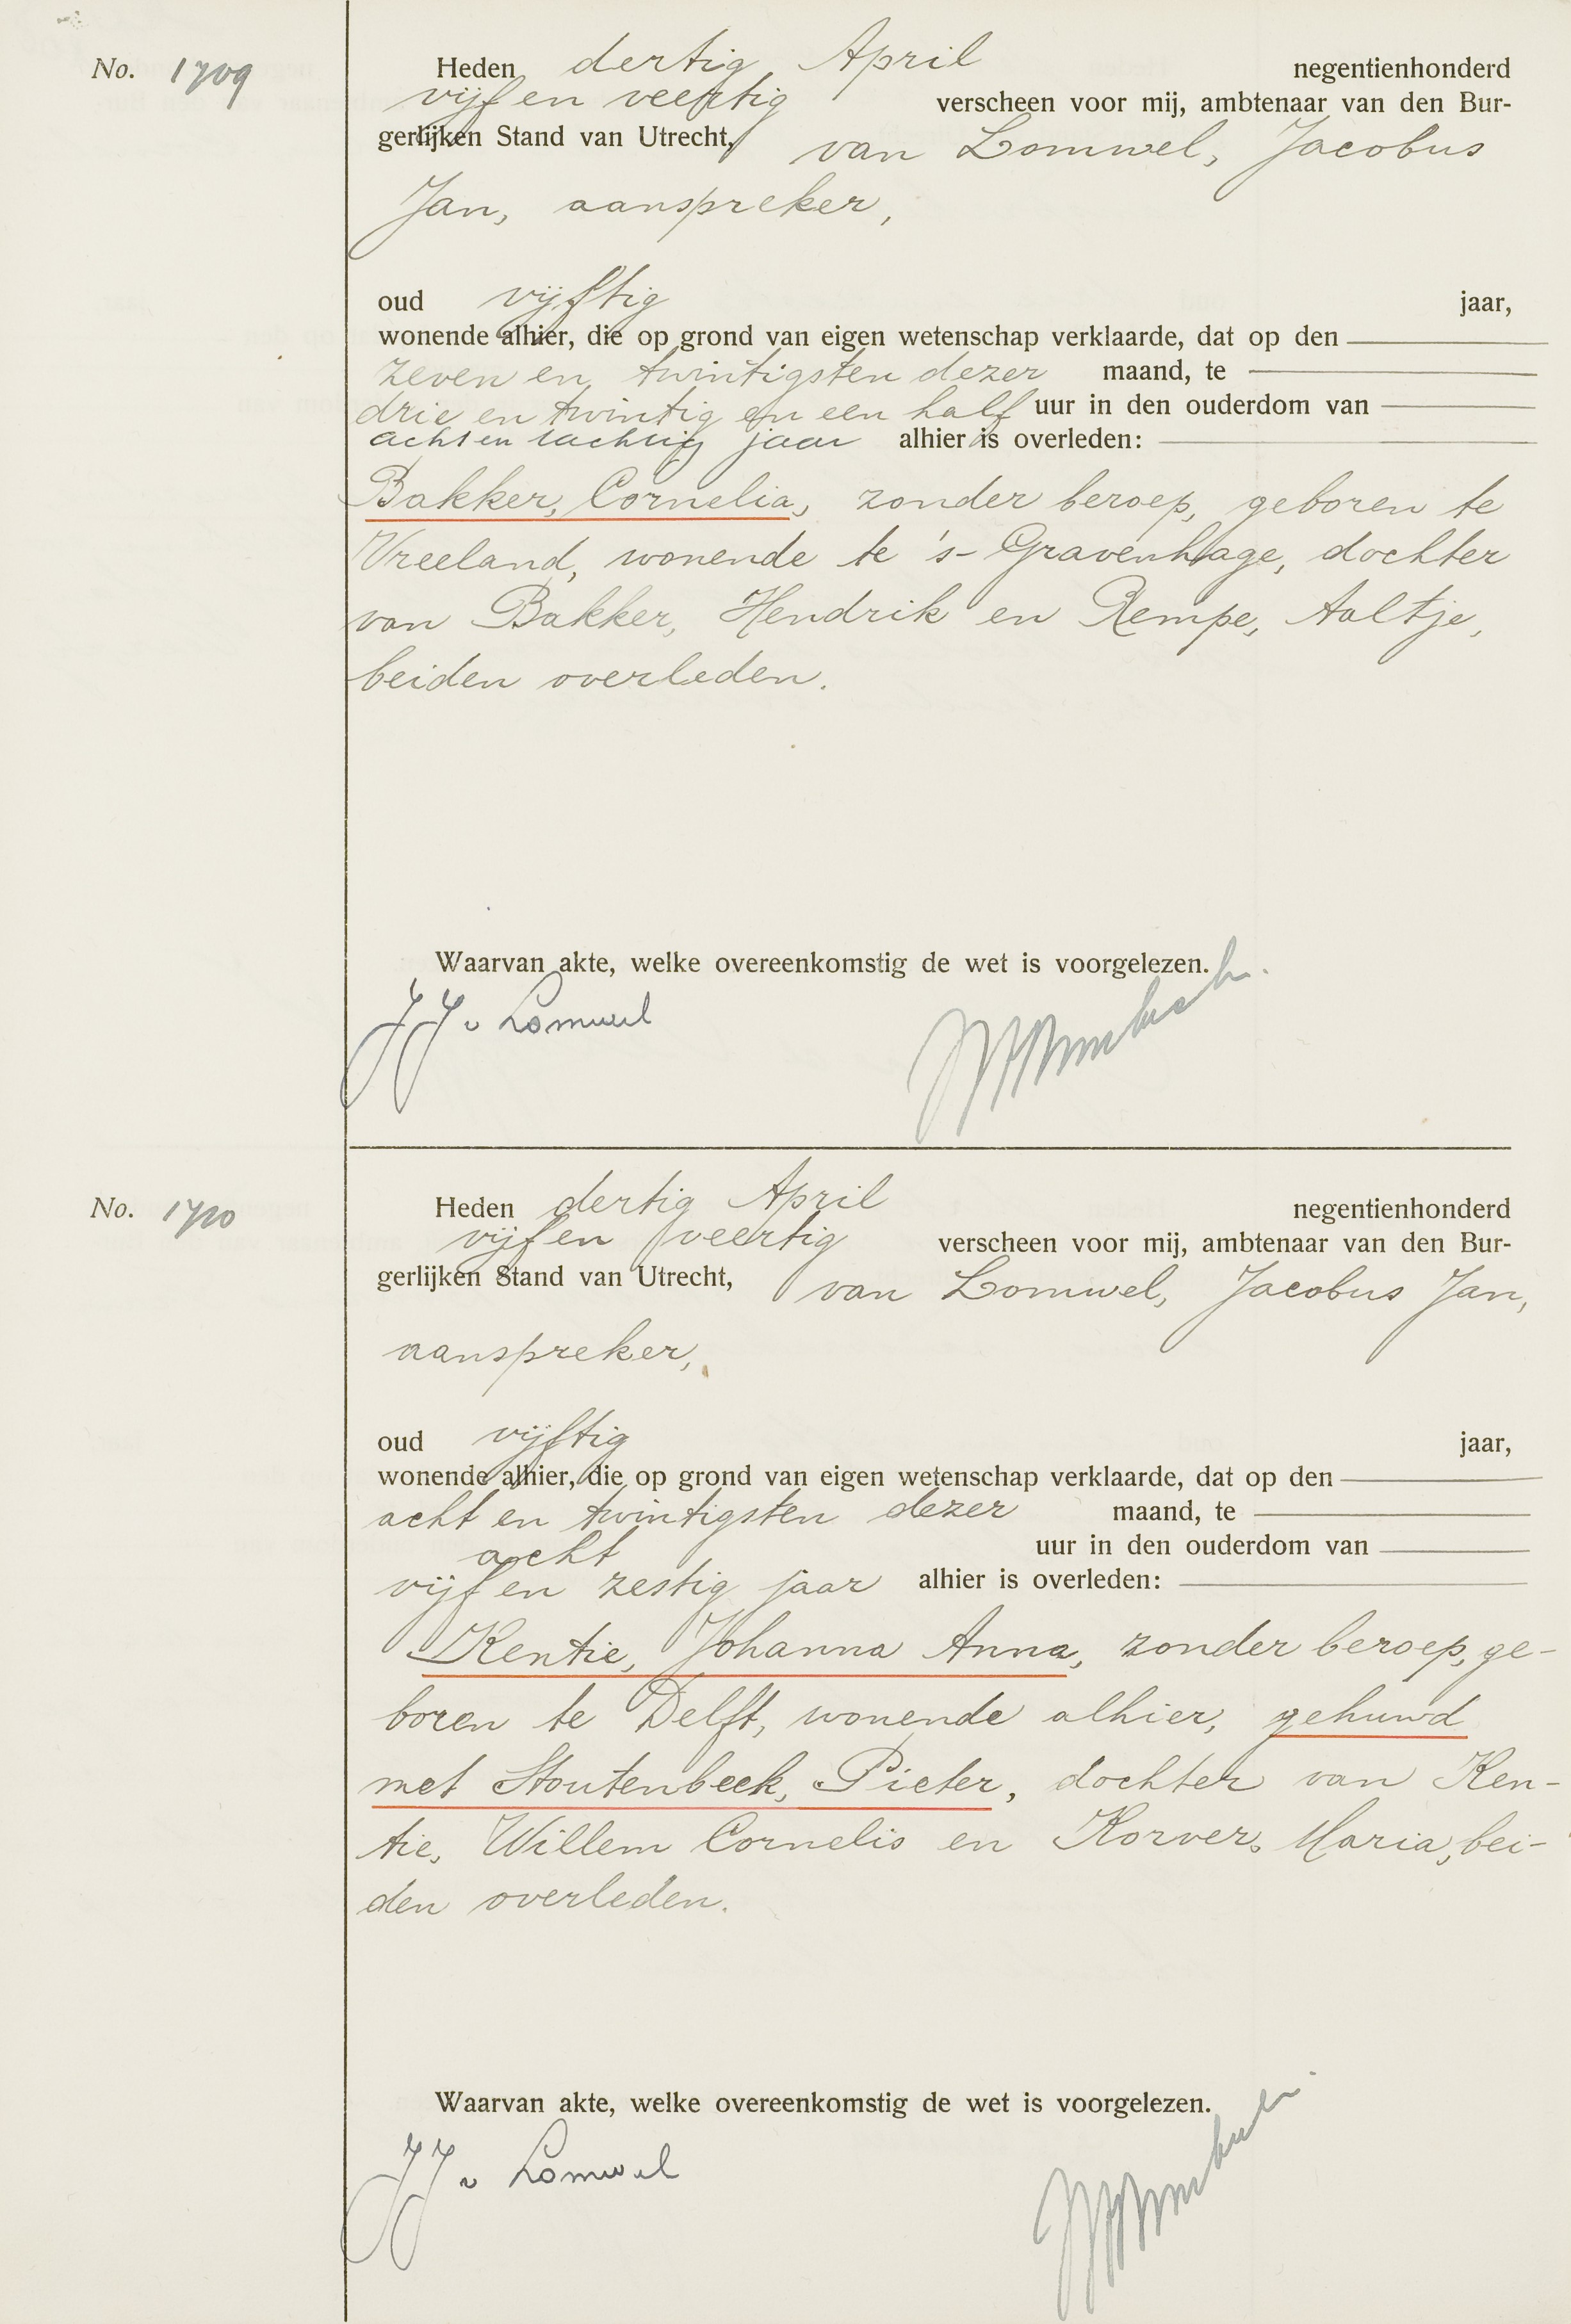 No. 1709
Heden dertig April negentienhonderd
vijf en veertig verscheen voor mij, ambtenaar van den Bur-
gerlijken Stand van Utrecht, van Lomwel, Jacobus
Jan, aanspreker,
oud vijftig jaar,
wonende alhier, die op grond van eigen wetenschap verklaarde, dat op den
zeven en twintigsten dezer maand, te
drie en twintig en een half uur in den ouderdom van
acht en tachtig jaar alhier is overleden:
Bakker, Cornelia, zonder beroep, geboren te
Vreeland, wonende te 's-Gravenhage, dochter
van Bakker, Hendrik en Rempe, Aaltje,
beiden overleden.
Waarvan akte, welke overeenkomstig de wet is voorgelezen.
JJ v Lomwel
No. 1710
Heden dertig April negentienhonderd
vijf en veertig verscheen voor mij, ambtenaar van den Bur-
gerlijken Stand van Utrecht, van Lomwel, Jacobus Jan,
aanspreker,
oud vijftig jaar,
wonende alhier, die op grond van eigen wetenschap verklaarde, dat op den
acht en twintigsten dezer maand, te
acht uur in den ouderdom van
vijf en zestig jaar alhier is overleden:
Kentie, Johanna Anna, zonder beroep, ge-
boren te Delft, wonende alhier, gehuwd
met Stoutenbeek, Pieter, dochter van Ken-
tie, Willem Cornelis en Korver, Maria, bei-
den overleden.
Waarvan akte, welke overeenkomstig de wet is voorgelezen.
JJ v Lomwel